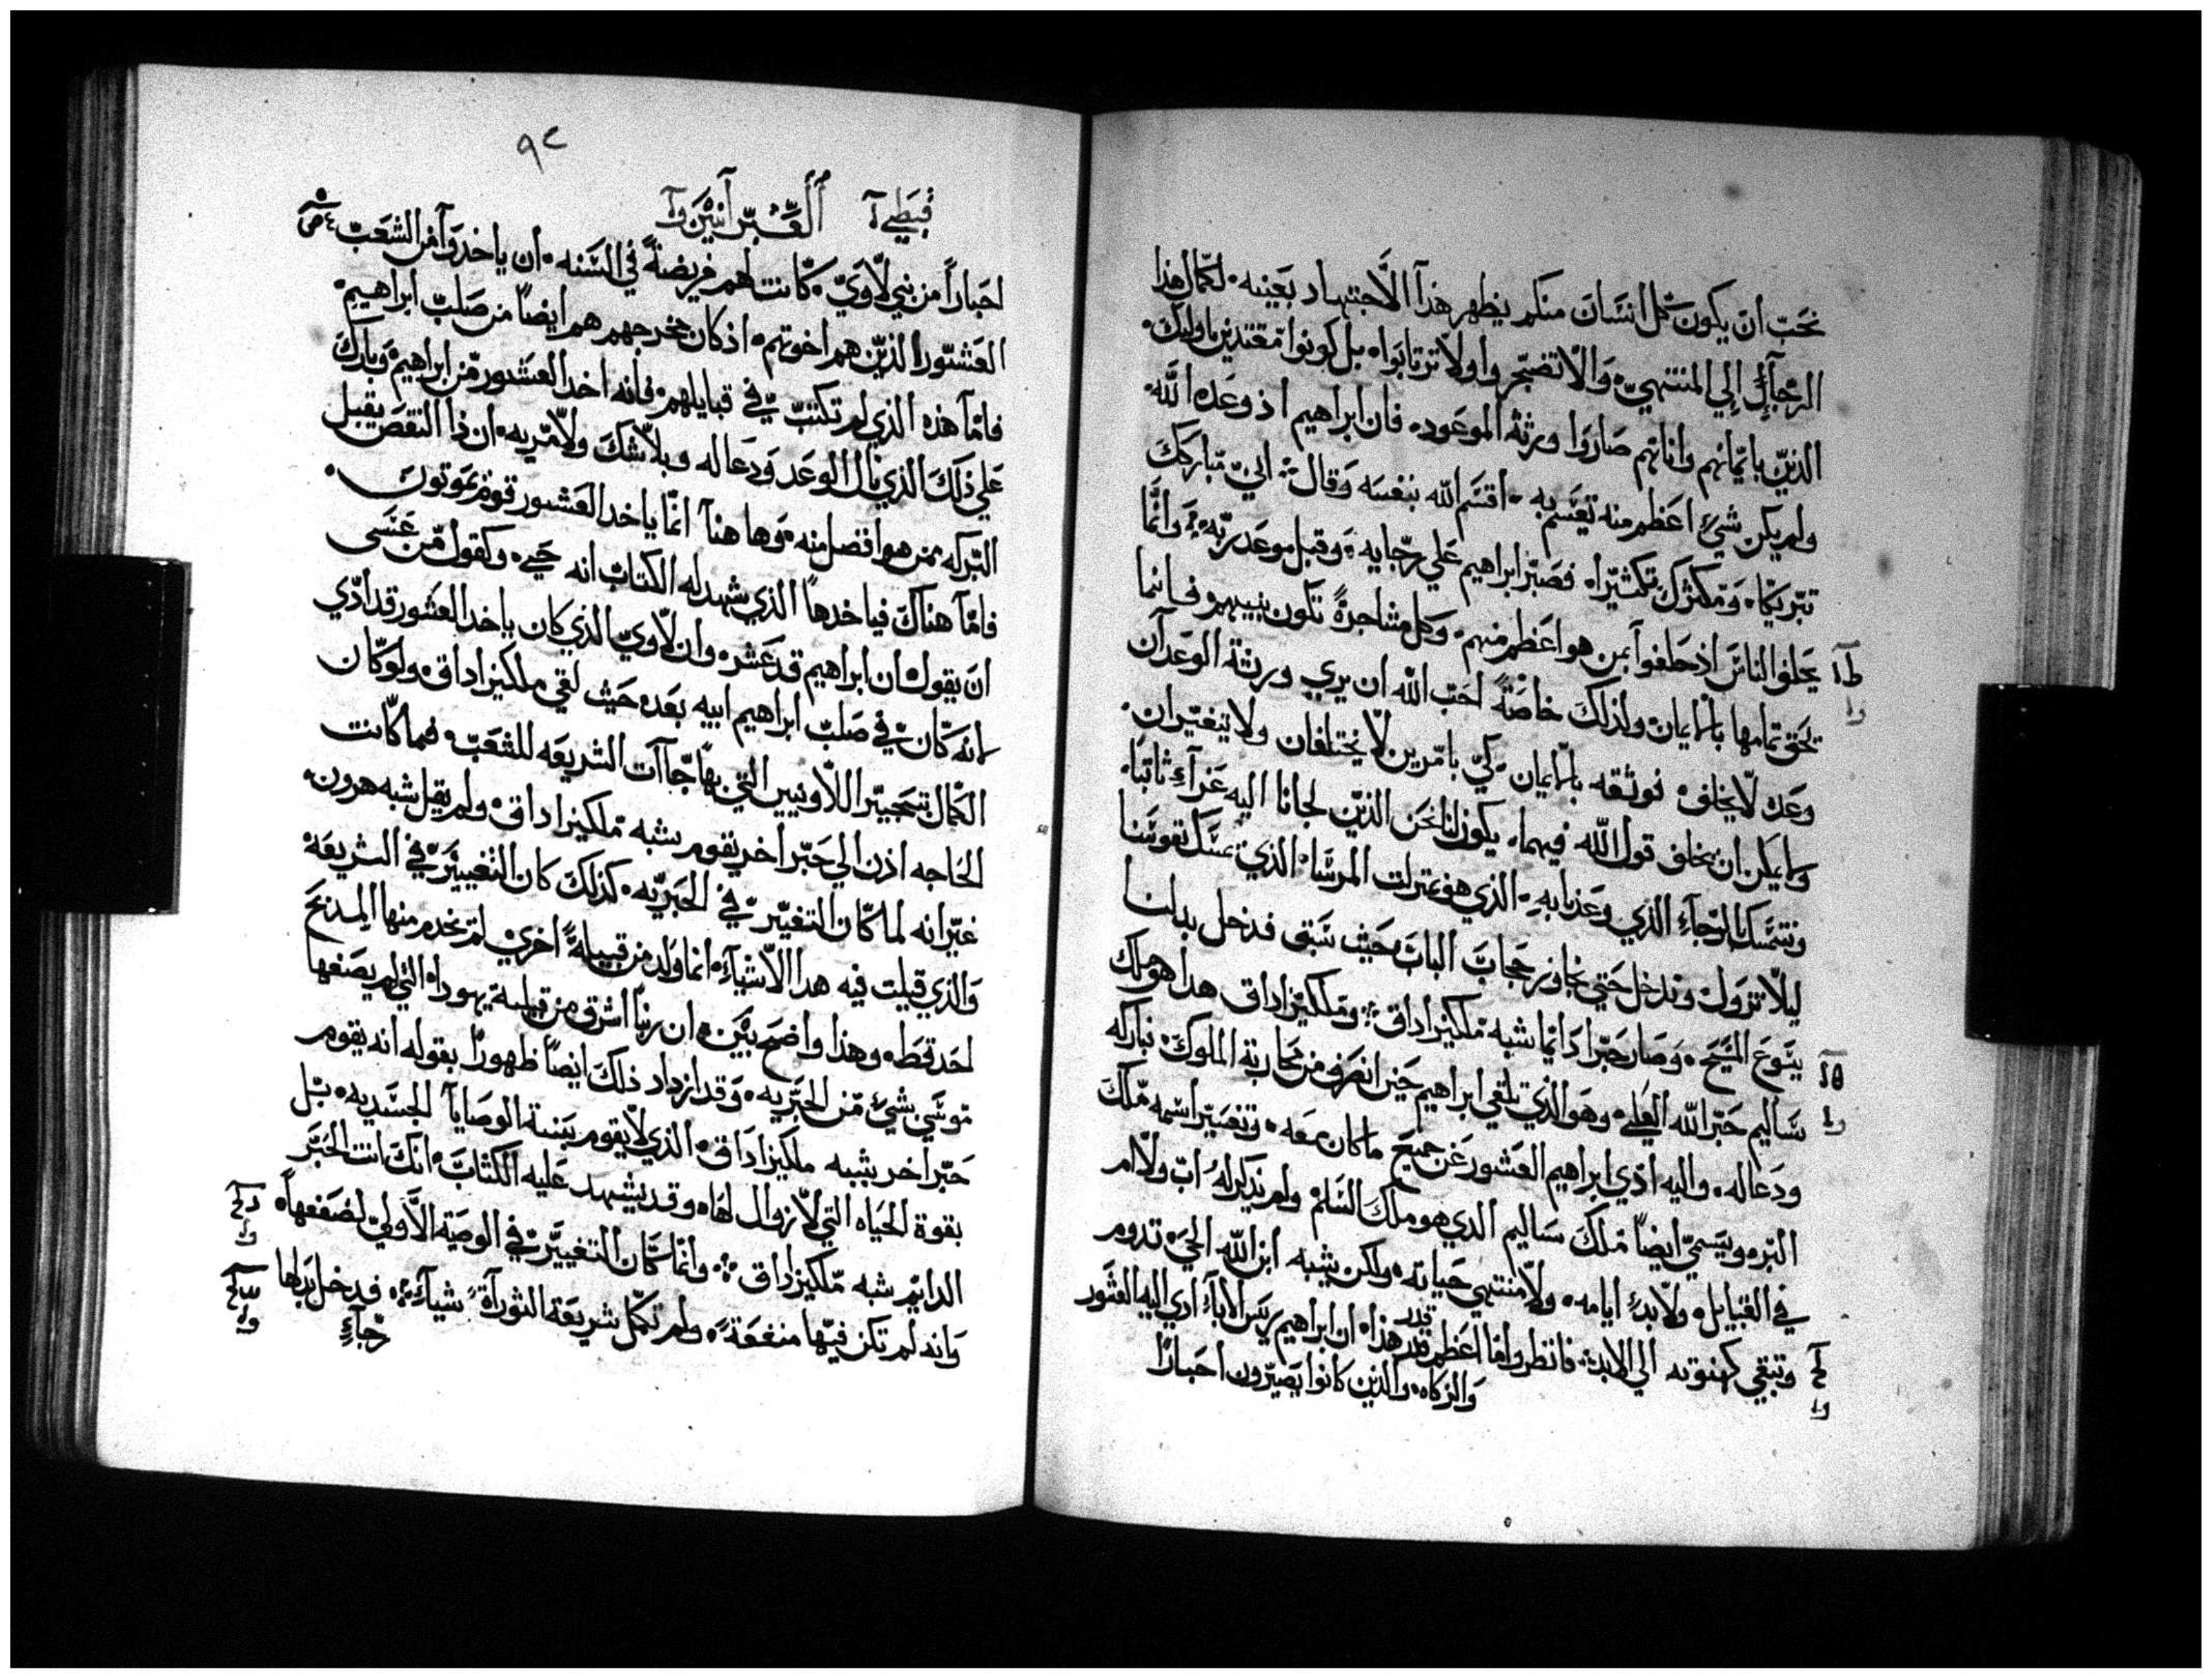 نحب ان يكون كل انسان منكم يظهر هذا الاجتهاد بعينه لكمال هذا
الرجآء الي المنتهي والا تضجروا ولا ترتابوا بل كونوا مقتدين باوليك
الذين بايمانهم واناتهم صاروا ورثة الموعود فان ابراهيم اذ وعده الله
ولم يكن شي اعظم منه يقسم به اقسم الله بنفسه وقال اني مباركك
تبريكا ومكثرك تكثيرا فصبر ابراهيم علي رجايه وقبل موعد ربه وانما
يحلف الناس اذ حلفوا بمن هو اعظم منهم وكل مشاجرة تكون بينهم فانما
تحق تمامها بالايمان ولذلك خاصة احب الله ان يري ورثة الوعد ان
وعده لا يخلف فوثقه بالايمان كي بامرين لا يختلفان ولا يتغيران
ولا يمكن ان يخلف قول الله فيهما يكون لنا نحن الذين لجانا اليه عزآء ثابتا
ونتمسك بالرجآء الذي وعدنا به الذي هو بمنزلت المرسا الذي يمسك نفوسنا
ليلا تزول وندخل حتي نجاوز حجاب الباب حيث سبق فدخل بدلنا
يسوع المسيح وصار حبرا دايما شبه ملكيزاداق وملكيزاداق هدا هو ملك
ساليم حبر الله العلي وهو الذي تلقي ابراهيم حين انصرف من محاربة الملوك فباركه
ودعا له واليه ادي ابراهيم العشور عن جميع ما كان معه وتفسير اسمه ملك
البر ويسمي ايضا ملك ساليم الدي هو ملك السلم ولم يذكر له اب ولا ام
في القبايل ولا بدء ايامه ولا منتهي حياته ولكن يشبه ابن الله الحي تدوم
وتبقي كهنوته الي الابد فانظروا ما اعظم قدر هذا ان ابراهيم ريس الابآء ادي اليه العشور
والزكاه والذين كانوا يصيرون احبارا
٩٢
قبطي ا العبرانيين
احبارا من بني لاوي كانت لهم فريضة في السنه ان ياخدوا من الشعب
العشور الذين هم اخوتهم اذ كان مخرجهم هم ايضا من صلب ابراهيم
فاما هذه الذي لم تكتب في قبايلهم فانه اخد العشور من ابراهيم وبارك
علي ذلك الذي نال الوعد ودعا له وبلا شك ولا مريه ان ذا النقص يقبل
البركه ممن هو افضل منه وها هنا انما ياخد العشور قوم يموتون
فاما هناك فياخدها الذي شهد له الكتاب انه حي وكقول من عسى
ان يقول ان ابراهيم قد عشر وان لاوي الذي كان ياخد العشور قد ادي
لانه كان في صلب ابراهيم ابيه بعده حيث لقي ملكيزاداق ولو كان
الكمال بتحبير اللاويين التي بها جآت الشريعه للشعب فما كانت
الحاجه اذن الي حبر اخر يقوم بشبه ملكيزاداق ولم يقل شبه هرون
غير انه لما كان التغير في الحبريه كذلك كان التغيير في الشريعة
والذي قيلت فيه هدا الاشيآء انما ولد من قبيلة اخري لم يخدم منها المدبح
احد قط وهذا واضح بين ان ربنا اشرق من قبيلة يهودا التي لم يصفها
موسي بشي من الحبريه وقد ازداد ذلك ايضا ظهورا بقوله انه يقوم
حبر اخر بشبه ملكيزاداق الذي لا يقوم بسنة الوصايا الجسديه بل
بقوة الحياه التي لا زوال لها وقد يشهد عليه الكتاب انك انت الحبر
الدايم شبه ملكيزداق وانما كان التغيير في الوصية الاولي لضعفها
وانه لم تكن فيها منفعة ولم تكمل شريعة التوراة شيآء فدخل بدلها
رجآء